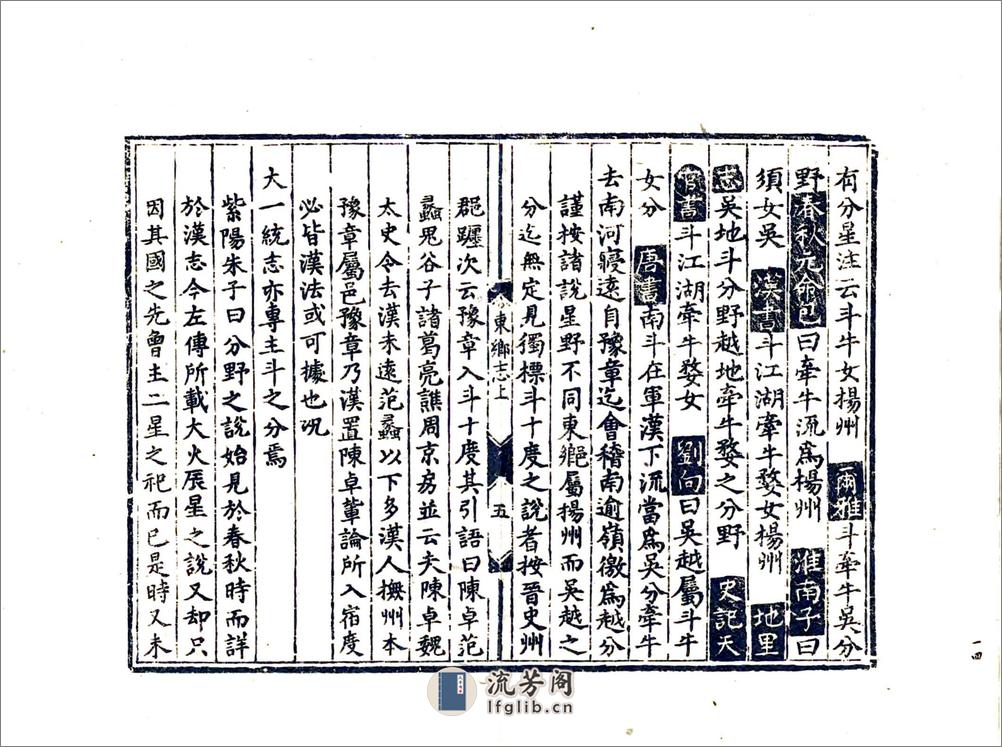 有分星注云斗牛女揚州 爾雅斗牽牛吳分
野春秋元命包曰牽牛流爲楊州 淮南子曰
須女吳 漢書斗江湖牽牛婺女揚州 地里
志吳地斗分野越地牽牛婺之分野 史記天
官書斗江湖牽牛婺女 劉向曰吳越屬斗牛
女分 唐書南斗在軍漢下流當爲吳分牽牛
去南河寖遠自豫章迄會稽南逾嶺徼爲越分
謹按諸說星野不同東鄉屬揚州而吳越之
分迄無定見獨標斗十度之說者按晉史州
東鄉志上 五
郡躔次云豫章入斗十度其引語曰陳卓范
蠡鬼谷子諸葛亮譙周京房並云夫陳卓魏
太史令去漢未遠范蠡以下多漢人撫州本
豫章屬邑豫章乃漢置陳卓軰論所入宿度
必皆漢法或可據也况
大一統志亦專主斗之分焉
紫陽朱子曰分野之說始見於春秋時而詳
於漢志今左傳所載大火辰星之說又却只
因其國之先曾主二星之祀而已是時又未
一四
流芳阁
lfglib.cn